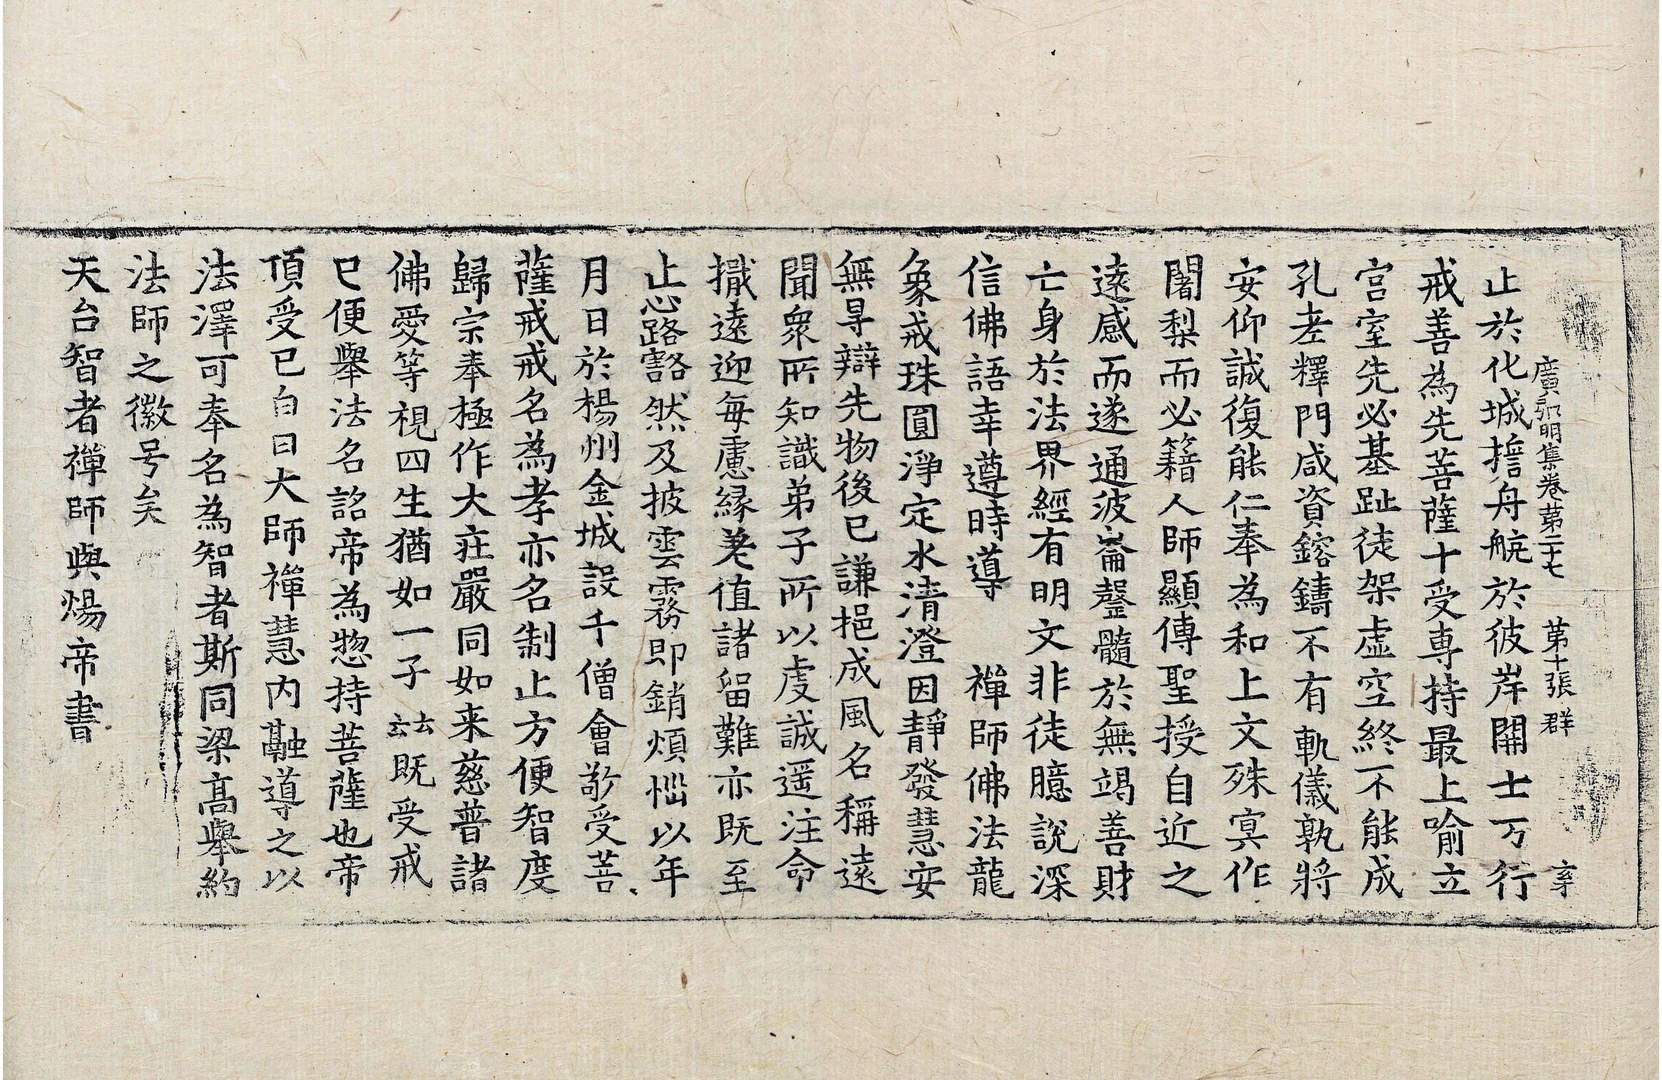 廣弘明集卷第二十七　第十張　群　亥
止於化城擔舟航於彼岸開士万行
戒善為先菩薩十受專持最上喻立
宮室先必基趾徒架虛空終不能成
孔老釋門咸資鎔鑄不有軌儀孰將
安仰誠復能仁奉為和上文殊寘作
闍梨而必籍人師顯傳聖授自近之
遠感而遂通波崙罄髓於無竭善財
亡身於法界經有明文非徒臆說深
信佛語幸遵時導　禪師佛法龍
象戒珠圓淨定水清澄因靜發慧安
無㝵辯先物後已謙挹成風名稱遠
聞衆所知識弟子所以虔誠遥注命
檝遠迎每慮緣差值諸留難亦既至
止心路豁然及披雲霧即銷煩惱以年
月日於楊州金城設千僧會敬受菩
薩戒戒名為孝亦名制止方便智度
歸宗奉極作大庄嚴同如来慈普諸
佛愛等視四生猶如一子云云既受戒
已便舉法名詺帝為惣持菩薩也帝
頂受已白曰大師禪慧內融導之以
法澤可奉名為智者斯同梁高舉約
法師之徽号矣
天台智者禪師與煬帝書